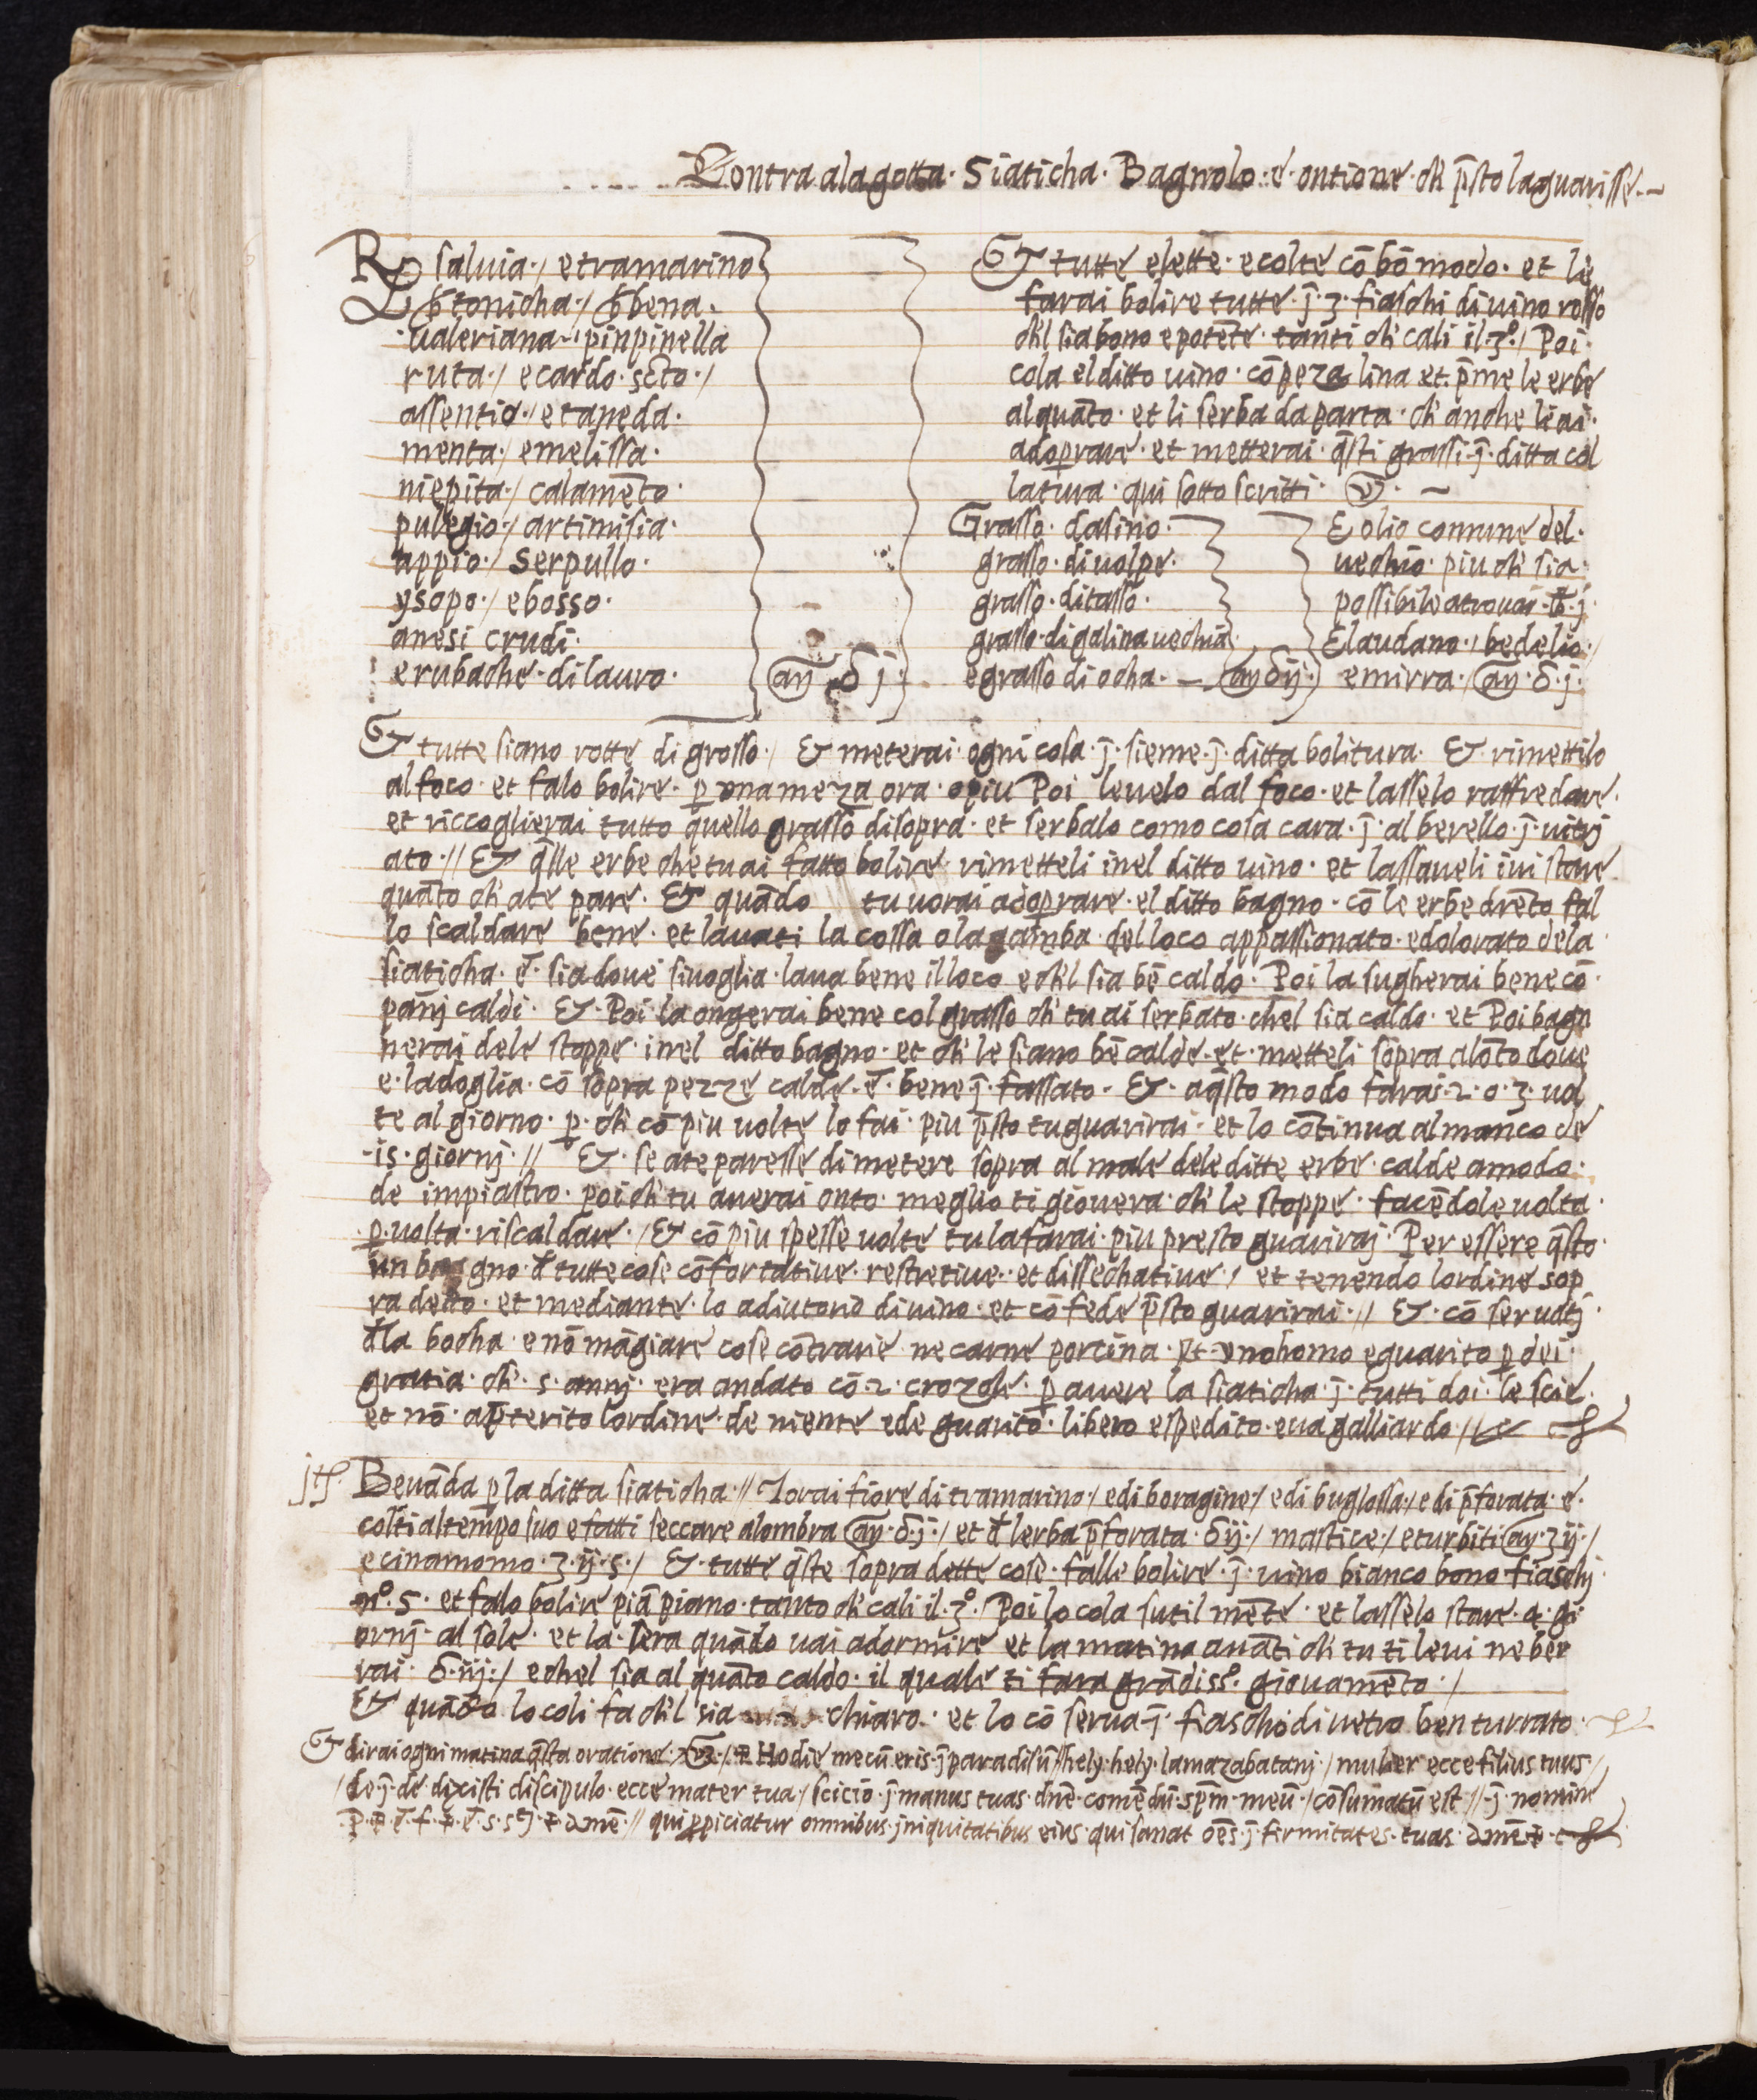 Contra ala gotta· Siaticha· Bagnolo· e· ontione· ch' p̄sto la guarisse·~
Rx saluia·/ e tramarino
b̄tonicha·/ b̄bena·
·ualeriana·/ pinpinella
ruta·/ e cardo· scto·/
assentio·/ e taneda·
menta·/ e melissa·
niepita·/ calamēto·
pulegio·/ artimisia·
appio·/ serpullo·
ysopo·/ e bosso·
anesi crudi·
e rubache· di lauro· añ δ j·
Et tutte elette· e colte cō bō modo· et le
farai bolire tutte· j̄· 3· fiaschi di uino rosso
ch'l sia bono e potēte· tanti ch' cali il· 3°·/ Poi·
cola el ditto uino· cō peza lina et p̄me le erbe
al quāto· et li serba da parta· ch' anche li ai·
adoprare· et metterai· q̄sti grassi· j̄· ditta col
latura· qui sotto scritti·
Grasso· dasino·
grasso· di uolpe·
grasso· di tasso·
grasso· di galina uechia·
e grasso di ocha· — añ δ ij·
E olio comune del·
uechio· piu ch' sia·
possibile a trouar· ℔· j·
E laudano·/ bedelio·/
e mirra·/ añ· δ· j·
Et tutte siano rotte di grosso·/ Et meterai· ogni cosa· j̄· sieme· j̄· ditta bolitura· Et rimettilo
al foco· et falo bolire· p̱ una meza ora· o piu Poi leuelo dal foco· et lasselo raffredare·
et riccoglierai tutto quello grasso di sopra· et serbalo como cosa cara· j̄· alberello· j̄· uitrj
ato·// Et q̄lle erbe che tu ai fatto bolire· rimetteli inel ditto uino· et lassaueli iui stare·
quāto ch' a te pare· Et quādo tu uorai adoprare· el ditto bagno· cō le erbe drēto fal
lo scaldare bene· et lauati la cossa o la gamba· del loco appassionato· e dolorato dela
siaticha· e· sia doue si uoglia· laua bene il loco e ch'l sia bē caldo· Poi la sugherai bene cō·
panj caldi· Et· Poi la ongerai bene col grasso ch' tu ai serbato· chel sia caldo· et Poi bagn
nerai dele stoppe· inel ditto bagno· et ch' le siano bē calde· et· metteli sopra alōto doue
e· la doglia· cō sopra pezze calde· e· bene j̄· fassato· Et· a q̄sto modo farai· 2· o 3· uol
te al giorno· p̱· ch' cō piu uolte lo fai· piu p̄sto tu guarirai· et lo cōtinua al manco de
·is· giornj·// Et· se a te paresse di metere sopra al male dele ditte erbe· calde a modo·
de impiastro· poi ch' tu auerai onto· meglio ti giouera· ch' le stoppe· facēdole uolta·
·p̱· uolta· riscaldare·/ Et cō piu spesse uolte tu la farai· piu presto guarirai· Per essere q̄sto·
un bagno· đ tutte cose cōfortatiue· restretiue· et dissechatiue·/ et tenendo lordine sop
ra detto· et mediante· lo adiutorio diuino· et cō fede p̄sto guarirai·// Et· cō seruatj·
đla bocha· e nō māgiare cose cōtrarie· ne carne porcina· uno homo e guarito p̱ dei·
gratia· ch'· 5· annj· era andato cō· 2· crozole· p̱ auere la siaticha· j̄· tutti doi· le scie·
et nō· a p̄terito lordine· de niente· ed e guarito· libero e spedito· e ua galliardo·//
jtʒ· Beuāda p̱ la ditta siaticha·// Torai fiore di tramarino·/ e di boragine·/ e di buglossa·/ e di p̄forata· e·
colti al tempo suo e fatti seccare a lombra añ· δ· j·/ et đ lerba p̄forata· δ ij·/ mastice·/ e turbiti añ· ʒ ij·/
e cinamomo· ʒ· ij· s·/ Et· tutte q̄ste sopra dette cose· falle bolire· j̄· uino bianco bono fiaschi
n°· 5· et falo bolire piā piano· tanto ch' cali il· 3°· Poi lo cola sutil mēte· et lasselo stare· 4· gi
ornj· al sole· et la· sera quādo uai a dormire et la matina auāti ch' tu ti leui ne ber
rai· δ· iij·/ e chel sia al quāto caldo· il quale ti fara grādiss°· giouamēto·/
Et quādo lo coli fa ch'l sia chiaro· et lo cō serua j̄· fiascho di uetro ben turrato·
Et dirai ogni matina q̄sta oratione· ✠ Hodie mecū eris· j̄ paradisū// hely· hely· lamazabatanj·/ mulier ecce filius tuus·/
/ de j̄· de dixisti discipulo· ecce mater tua·/ scicio· j̄· manus tuas· dn̄e· comēdū· sp̄m· meū·/ cōsumatū est·// j̄· nomine
·P· ✠ e· f· ✠ e· s· stj· ✠ amē·// qui p̱piciatur omnibus· jniquitatibus eius· qui sanat oēs· j̄· firmitates· tuas· amē ✠